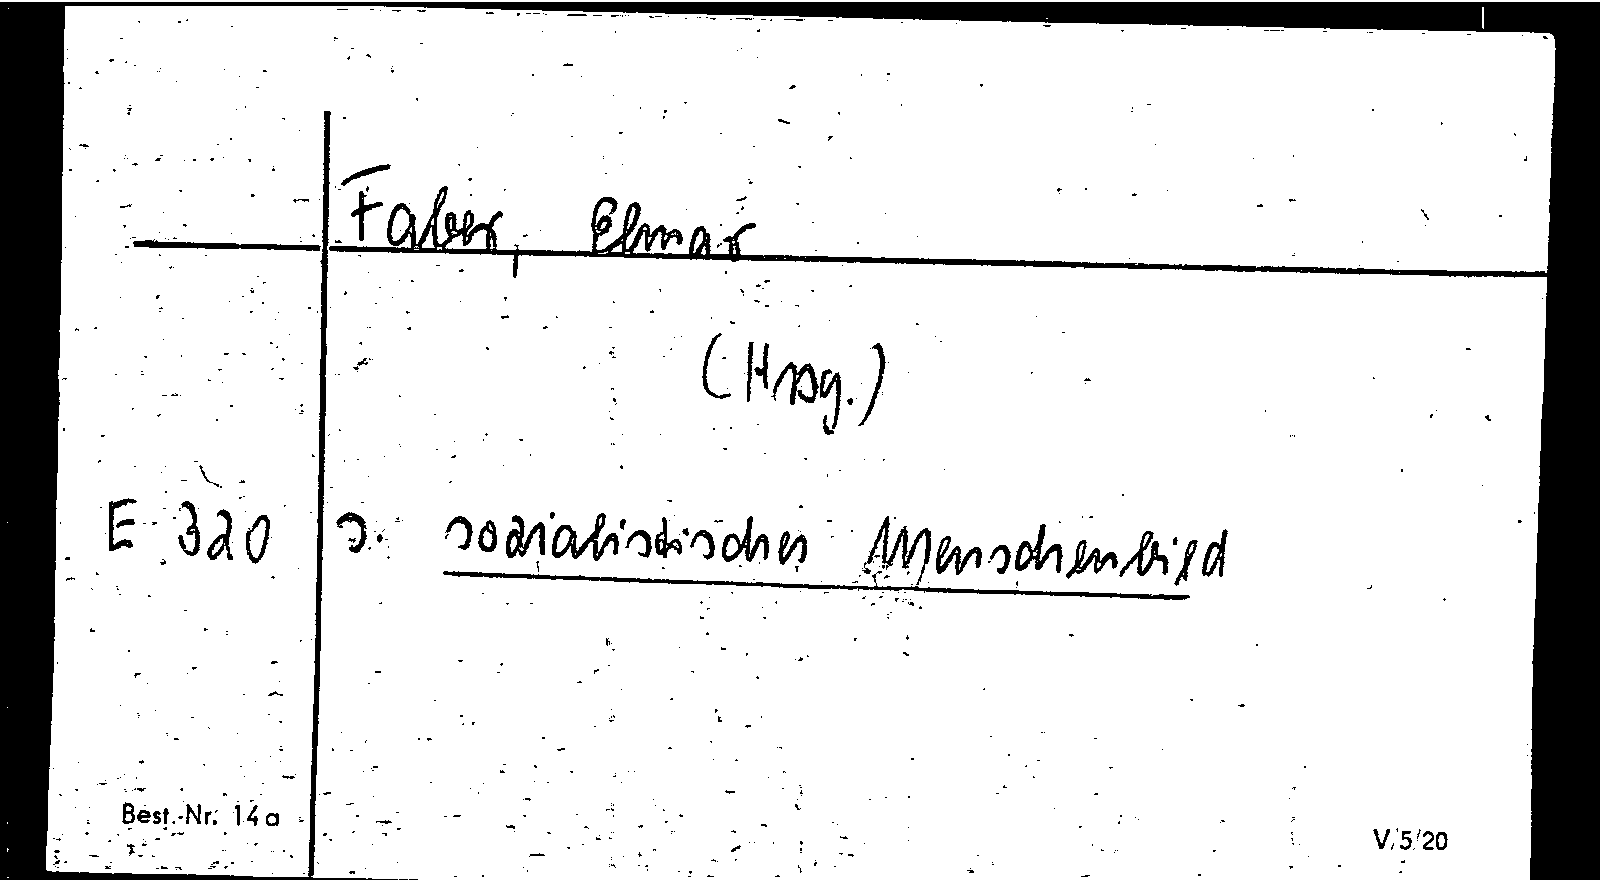 Faber, Elmar
(Hrsg.)
E 320 s. sozialistisches Menschenbild
Best.-Nr. 14a
V/5/20